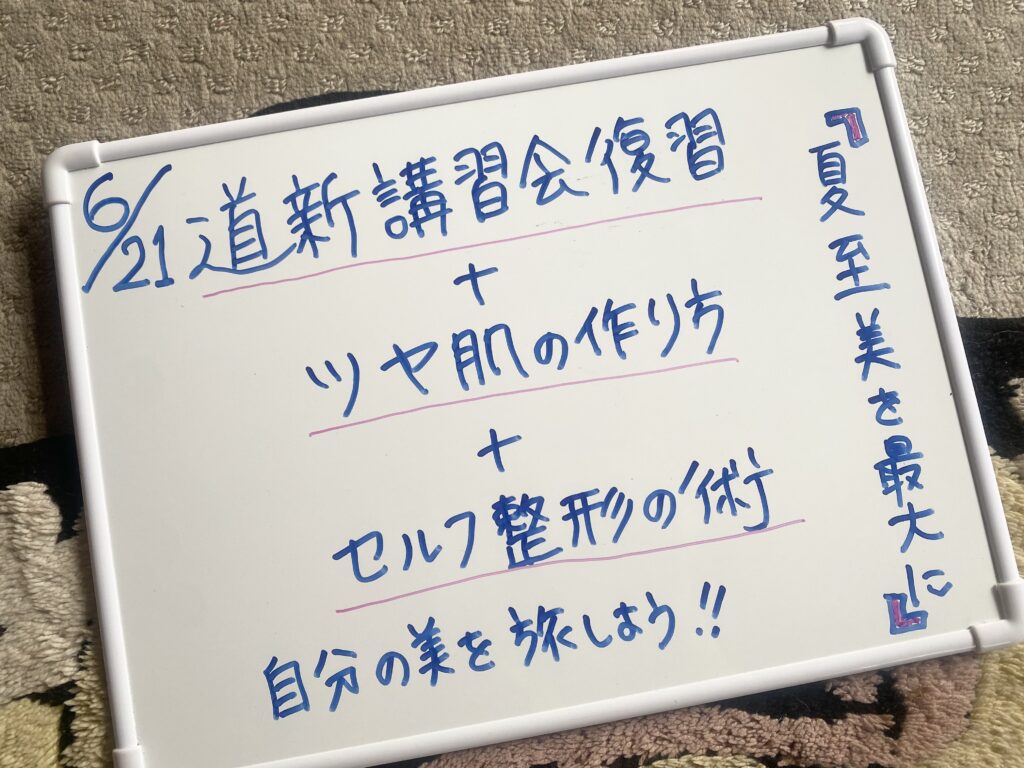 『夏至美を最大に』
6/21 道新講習会復習
+
ツヤ肌の作り方
+
セルフ整形の術
自分の美を旅しよう!!